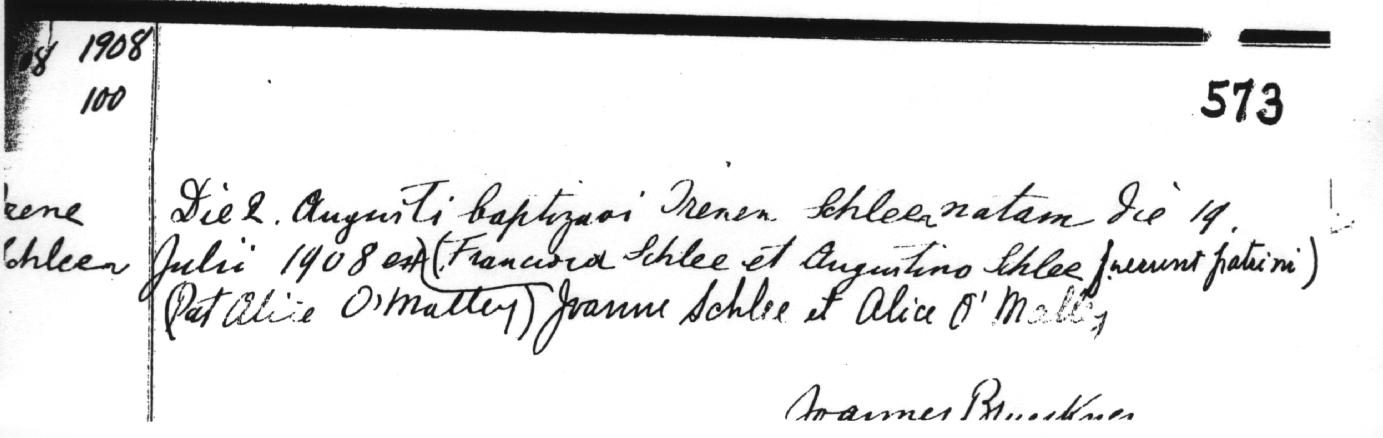 08 1908
100
573
Irene Die 2. Augusti baptizavi Irenen Schleen natam die 19.
Schleen Julii 1908 ex (Francisca Schlee et Augustino Schlee fuerunt patrini)
(Pat Alice O'Malley) Joanne Schlee et Alice O'Malley
Joannes